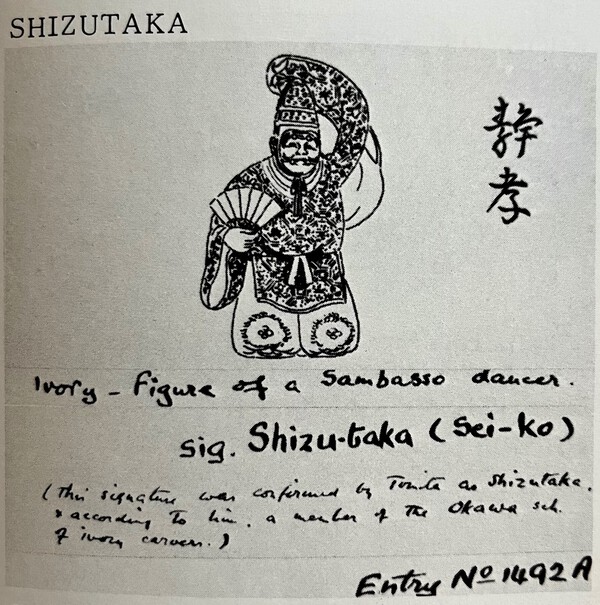 SHIZUTAKA
静
孝
Ivory - Figure of a Sambasso dancer.
Sig. Shizu-taka (Sei-ko)
(This signature was confirmed by Tomita as Shizutaka,
& according to him, a member of the Okawa sch.
of ivory carvers.)
Entry Nº 1492A